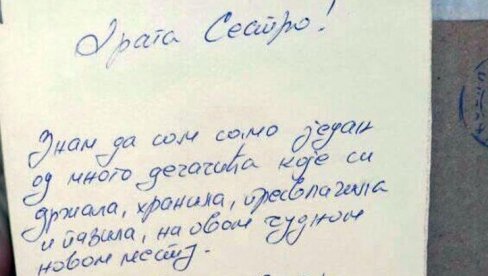 Драга Сестро!
Знам да сам само један
од много дечачића које си
држала, хранила, пресвлачила
и пазила, на овом чудном
новом месту.